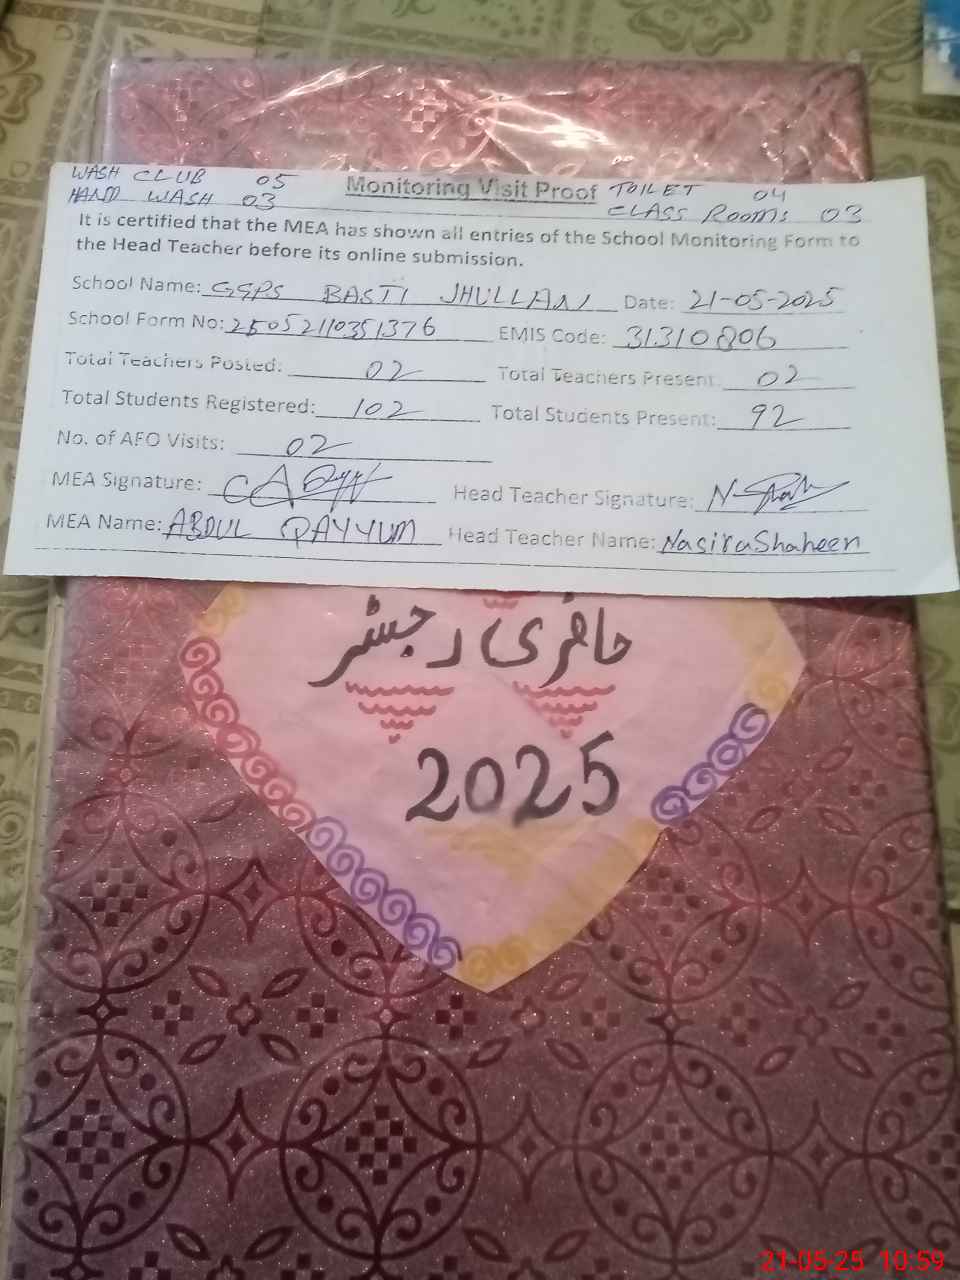 WASH CLUB 05 Monitoring Visit Proof TOILET 04
HAND WASH 03 CLASS ROOMS 03
It is certified that the MEA has shown all entries of the School Monitoring Form to
the Head Teacher before its online submission.
School Name: GGPS BASTI JHULLAN Date: 21-05-2025
School Form No: 25052110351376 EMIS Code: 31310806
Total Teachers Posted: 02 Total Teachers Present: 02
Total Students Registered: 102 Total Students Present: 92
No. of AFO Visits: 02
MEA Signature: Head Teacher Signature:
MEA Name: ABDUL QAYYUM Head Teacher Name: Nasira Shaheen
حاضری رجسٹر
2025
21-05-25 10:59